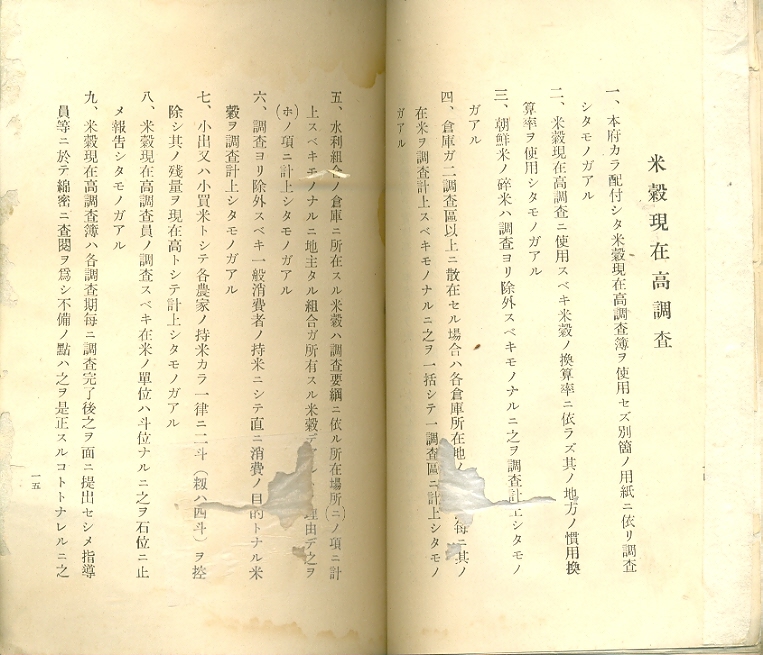 米穀現在高調査
一、本府カラ配付シタ米穀現在高調査簿ヲ使用セズ別箇ノ用紙ニ依リ調査
シタモノガアル
二、米穀現在高調査ニ使用スベキ米穀ノ換算率ニ依ラズ其ノ地方ノ慣用換
算率ヲ使用シタモノガアル
三、朝鮮米ノ碎米ハ調査ヨリ除外スベキモノナルニ之ヲ調査計上シタモノ
ガアル
四、倉庫ガ二調査區以上ニ散在セル場合ハ各倉庫所在地ノ 每ニ其ノ
在米ヲ調査計上スベキモノナルニ之ヲ一括シテ一調査區ニ計上シタモノ
ガアル
五、水利組合ノ倉庫ニ所在スル米穀ハ調査要綱ニ依ル所在場所(ニ)ノ項ニ計
上スベキモノナルニ地主タル組合ガ所有スル米穀デ 理由デ之ヲ
(ホ)ノ項ニ計上シタモノガアル
六、調査ヨリ除外スベキ一般消費者ノ持米ニシテ直ニ消費ノ目的トナル米
穀ヲ調査計上シタモノガアル
七、小出又ハ小買米トシテ各農家ノ持米カラ一律ニ二斗(籾ハ四斗)ヲ控
除シ其ノ残量ヲ現在高トシテ計上シタモノガアル
八、米穀現在高調査員ノ調査スベキ在米ノ單位ハ斗位ナルニ之ヲ石位ニ止
メ報告シタモノガアル
九、米穀現在高調査簿ハ各調査期每ニ調査完了後之ヲ面ニ提出セシメ指導
員等ニ於テ綿密ニ査閱ヲ爲シ不備ノ點ハ之ヲ是正スルコトトナレルニ之
一五